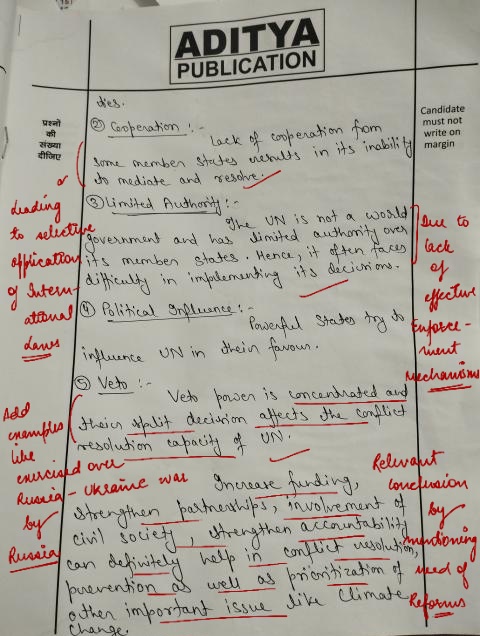 ADITYA
PUBLICATION
प्रश्नों
की
संख्या
दीजिए
Candidate
must not
write on
margin
dies.
② Cooperation :-
Lack of cooperation from
some member states results in its inability
to mediate and resolve.
③ Limited Authority :-
The UN is not a world
government and has limited authority over
its member states. Hence, it often faces
difficulty in implementing its decisions.
④ Political Influence :-
Powerful States try to
influence UN in their favour.
⑤ Veto :-
Veto power is concentrated and
their split decision affects the conflict
resolution capacity of UN.
Increase funding,
strengthen partnerships, involvement of
civil society, strengthen accountability
can definitely help in conflict resolution,
prevention as well as prioritization of
other important issue like Climate
Change.
Leading
to selective
application
of Intern-
ational
Laws
Due to
lack
of
effective
Enforce-
ment
Mechanisms
Add
examples
like
exercised over
Russia - Ukraine war
by
Russia
Relevant
conclusion
by
mentioning
need of
Reforms